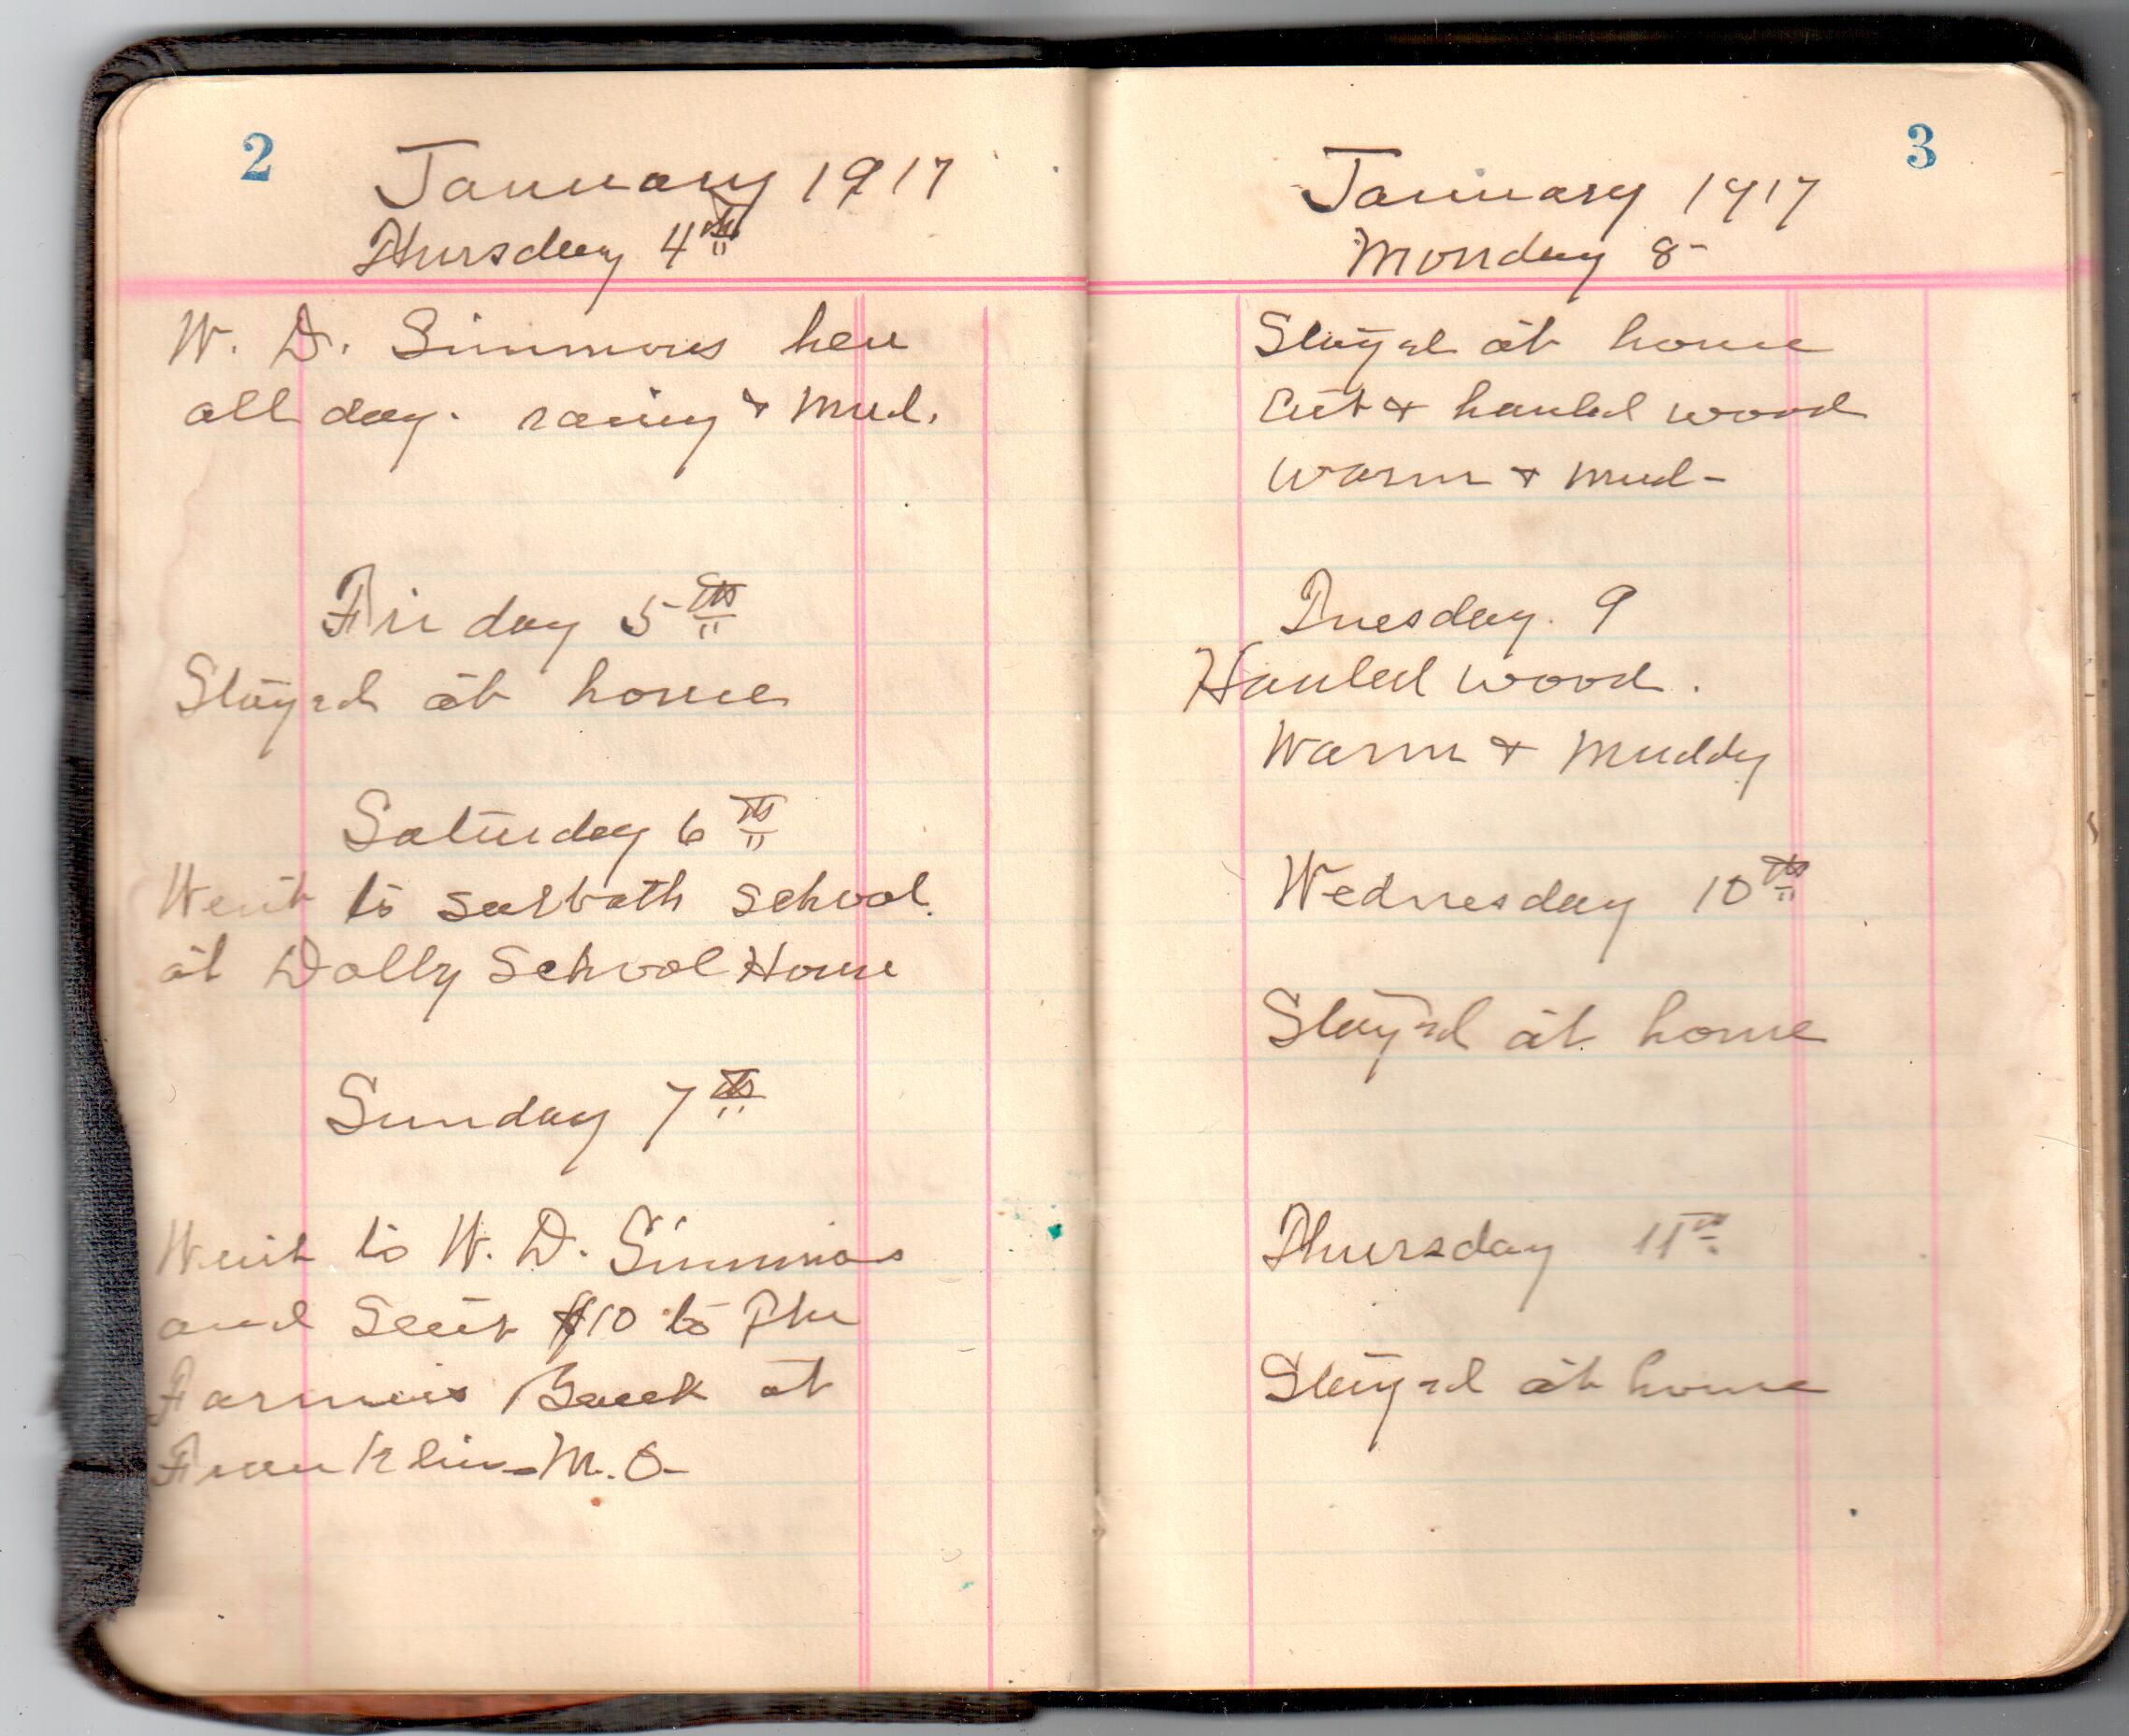 2
January 1917
Thursday 4th
W. D. Simmons here
all day. rainy & mud.
Friday 5th
Stayed at home
Saturday 6th
Went to Sabbath School
at Dolly School House
Sunday 7th
Went to W. D. Simmons
and Sent $10 to The
Farmers Bank at
Franklin - M. O-
3
January 1917
Monday 8-
Stayed at home
Cut & hauled wood
Warm & mud-
Tuesday. 9
Hauled wood.
Warm & Muddy
Wednesday 10th
Stayed at home
Thursday 11th
Stayed at home